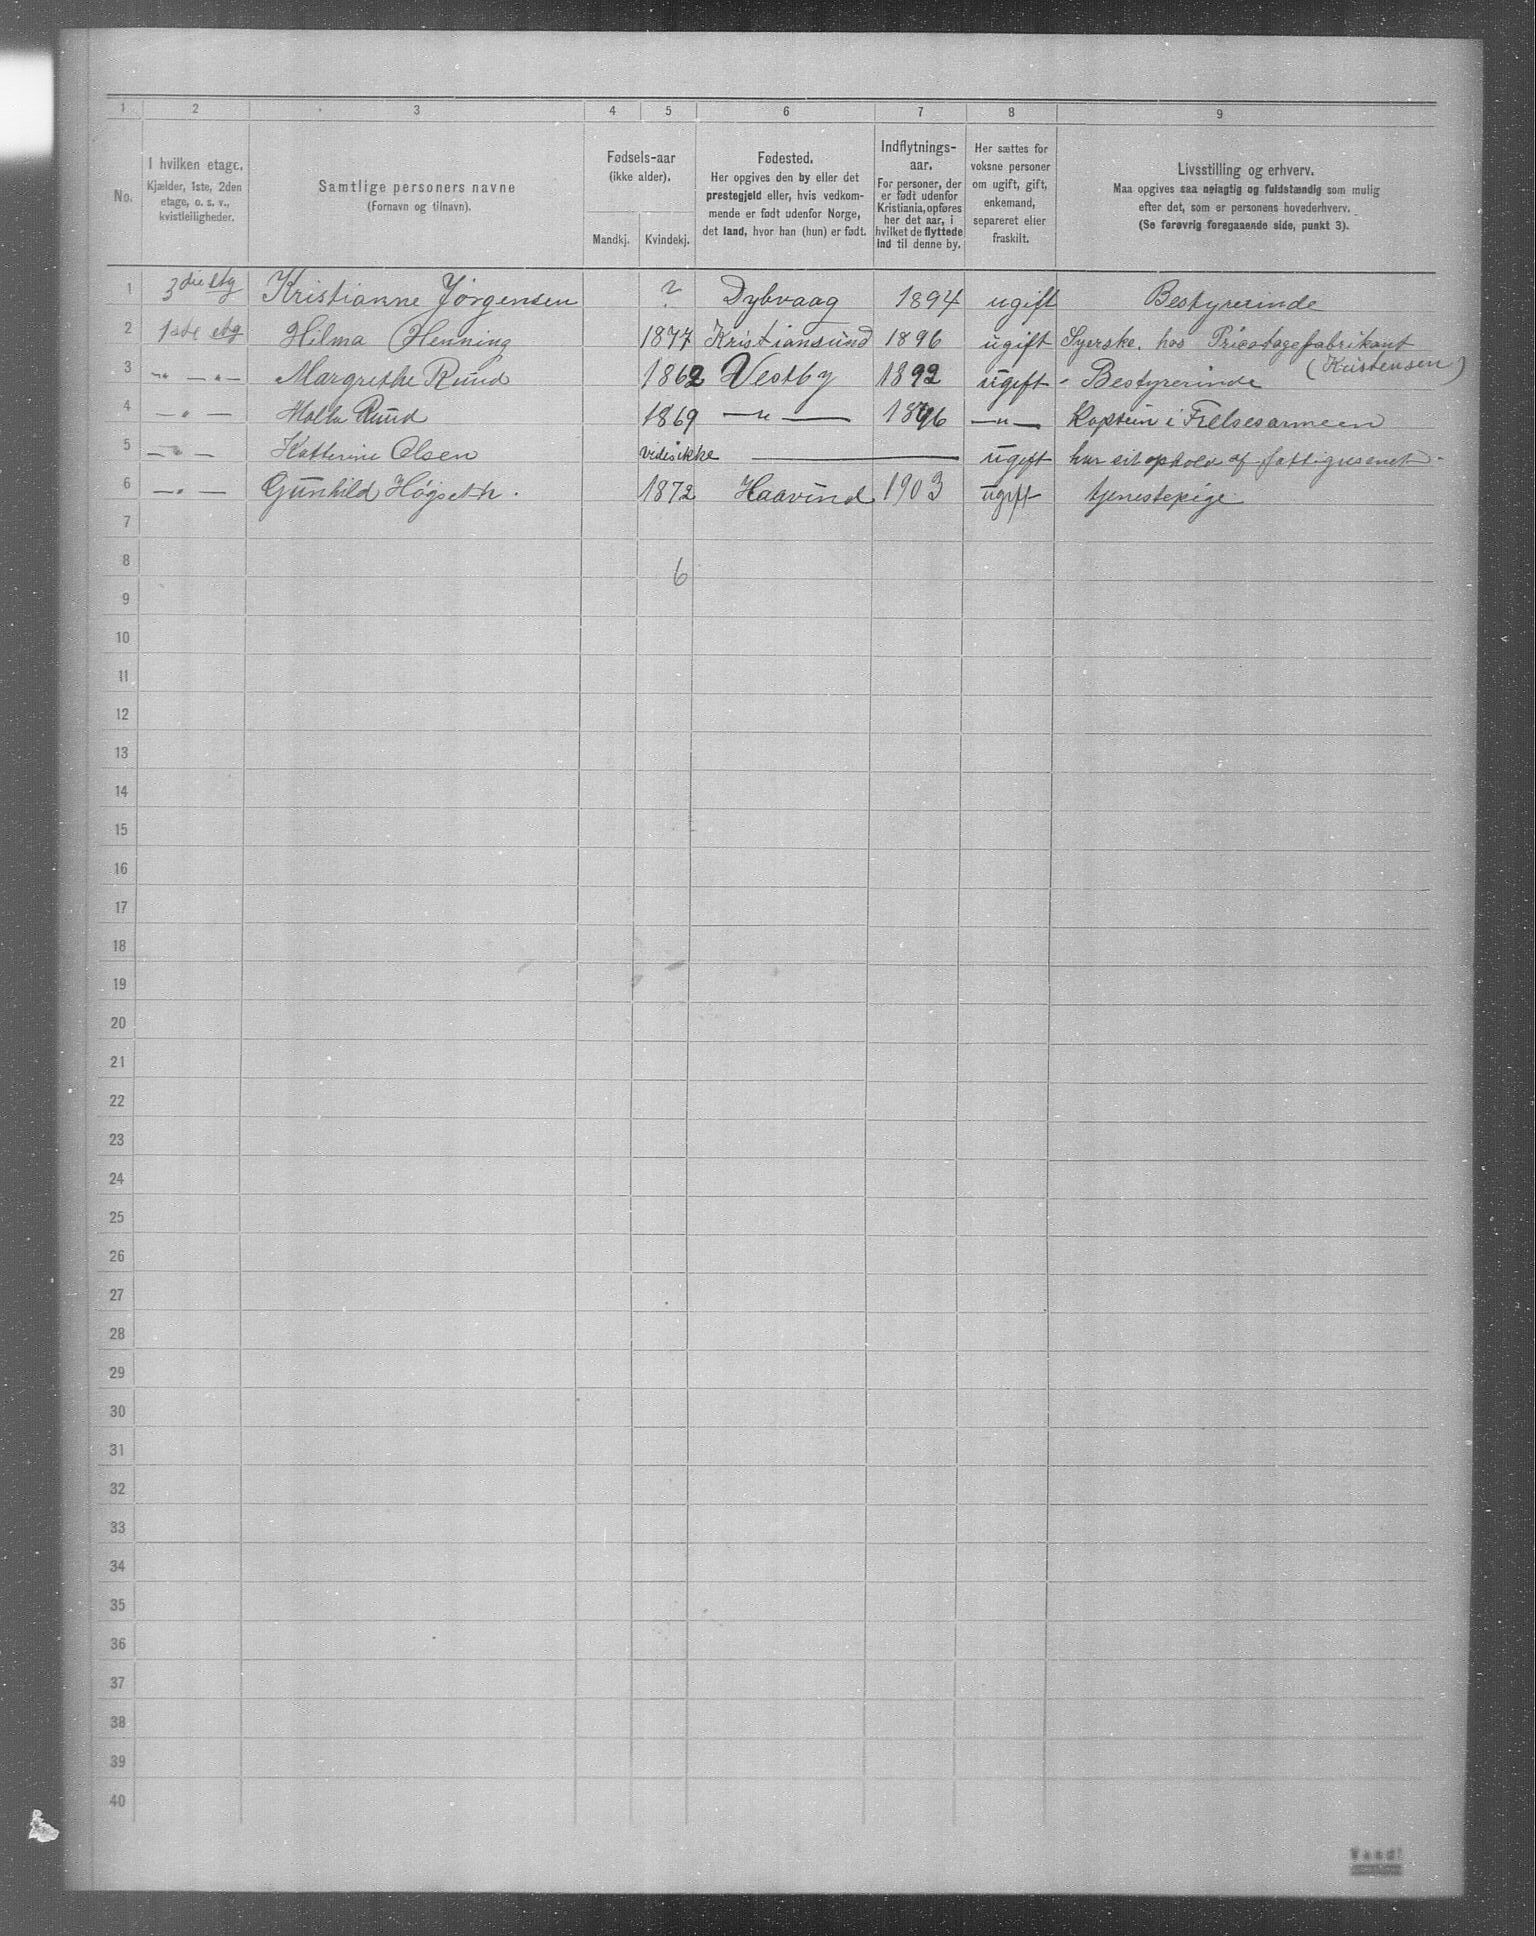 1 2 3 4 5 6 7 8 9
No.
I hvilken etage.
Kjælder, 1ste, 2den
etage, o. s. v.,
kvistleiligheder.
Samtlige personers navne
(Fornavn og tilnavn).
Fødsels-aar
(ikke alder).
Mandkj. Kvindekj.
Fødested.
Her opgives den by eller det
prestegjeld eller, hvis vedkom-
mende er født udenfor Norge,
det land, hvor han (hun) er født.
Indflytnings-
aar.
For personer, der
er født udenfor
Kristiania, opføres
her det aar, i
hvilket de flyttede
ind til denne by.
Her sættes for
voksne personer
om ugift, gift,
enkemand,
separeret eller
fraskilt.
Livsstilling og erhverv.
Maa opgives saa nøiagtig og fuldstændig som mulig
efter det, som er personens hovederhverv.
(Se forøvrig foregaaende side, punkt 3).
1 3die etg Kristianne Jørgensen ? Dybvaag 1894 ugift Bestyrerinde
2 1ste etg Hilma Henning 1877 Kristiansund 1896 ugift Syerske hos Tricotagefabrikant
(Kristensen)
3 -"- -"- Margrethe Ruud 1862 Vestby 1892 ugift - Bestyrerinde
4 -"- Ruud 1869 -"- 1896 -"- Kaptein i Frelsesarmeen
5 -"- Katterine Olsen vides ikke ugift har sit ophold af
6 -"- Gunhild Høgseth. 1872 1903 ugift tjenestepige
7
8 6
9
10
11
12
13
14
15
16
17
18
19
20
21
22
23
24
25
26
27
28
29
30
31
32
33
34
35
36
37
38
39
40
Vend!